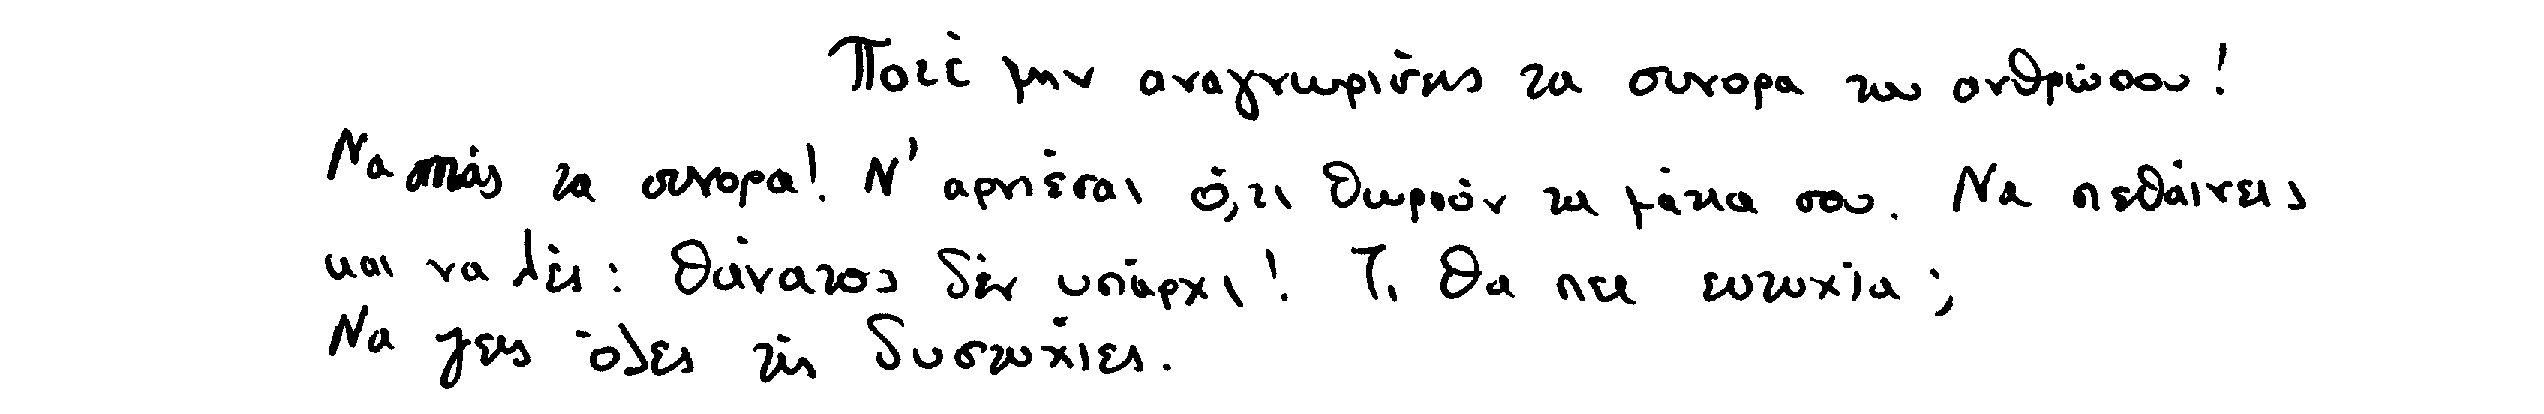 Ποτέ μην αναγνωρίσεις τα συνορα του ανθρώπου!
Να σπάς τα συνορα! Ν' αρνιέσαι ό,τι θωρούν τα μάτια σου. Να πεθαίνεις
και να λές: Θάνατος δέν υπάρχι! Τι θα πει ευτυχία;
Να ζεις όλες τίς δυστυχίες.